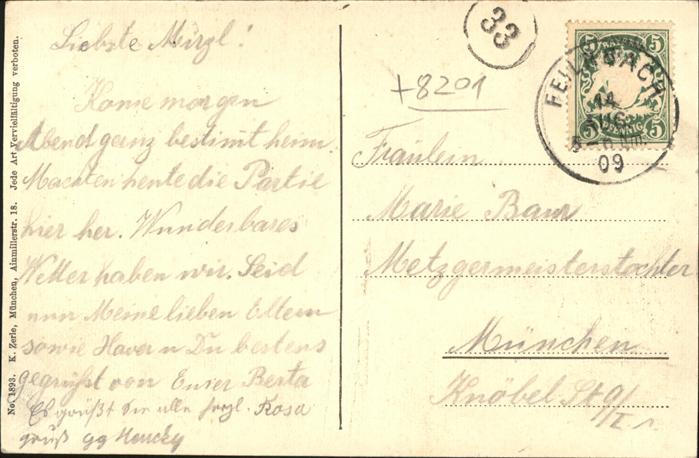 Liebste Mirzl!
Kome morgen
Abend ganz bestimt heim.
Machten heute die Partie
hier her. Wunderbares
Wetter haben wir. Seid
nun Meine lieben Eltern
sowie Xaver u Du bestens
gegrüßt von Euer Berta
Es grüßt Sie alle frzl. Rosa
gruß
No. 1893. K. Zerle, München, Ainmillerstr. 18. Jede Art Vervielfältigung verboten.
33
+8201
5 5
PFENNIG
5 5
FEILNBACH
14
09
Fräulein
Marie Baur
Metzgermeisterstochter
München
Knöbel St 9/I r.